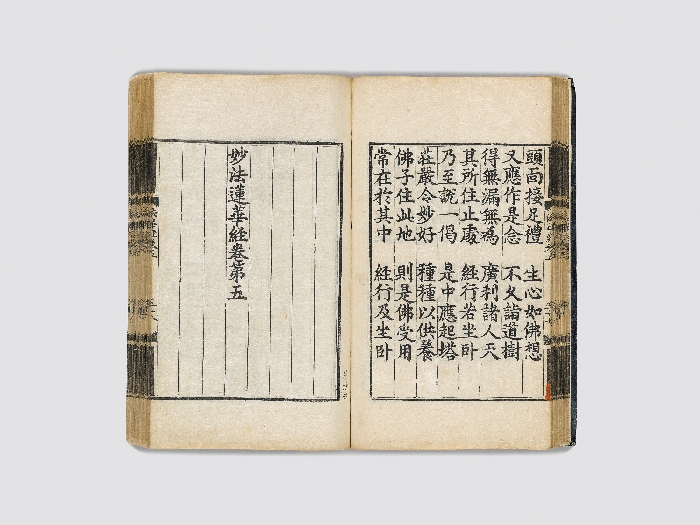 頭面接足禮 生心如佛想
又應作是念 不久詣道樹
得無漏無為 廣利諸人天
其所住止處 經行若坐卧
乃至說一偈 是中應起塔
莊嚴令妙好 種種以供養
佛子住此地 則是佛受用
常在於其中 經行及坐卧
妙法蓮華經卷第五